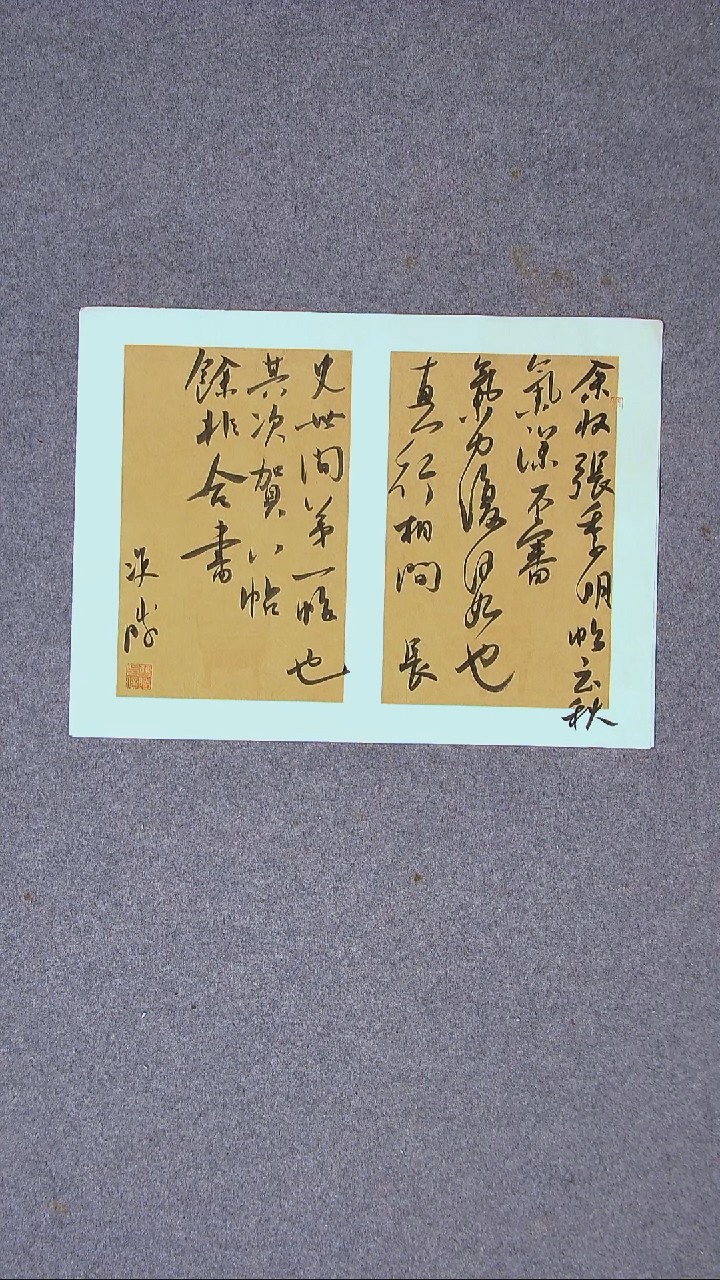 余收張季明帖云秋
氣深不審
氣力復何如也
真行相間 長
史世間第一帖也
其次賀八帖
餘非合書